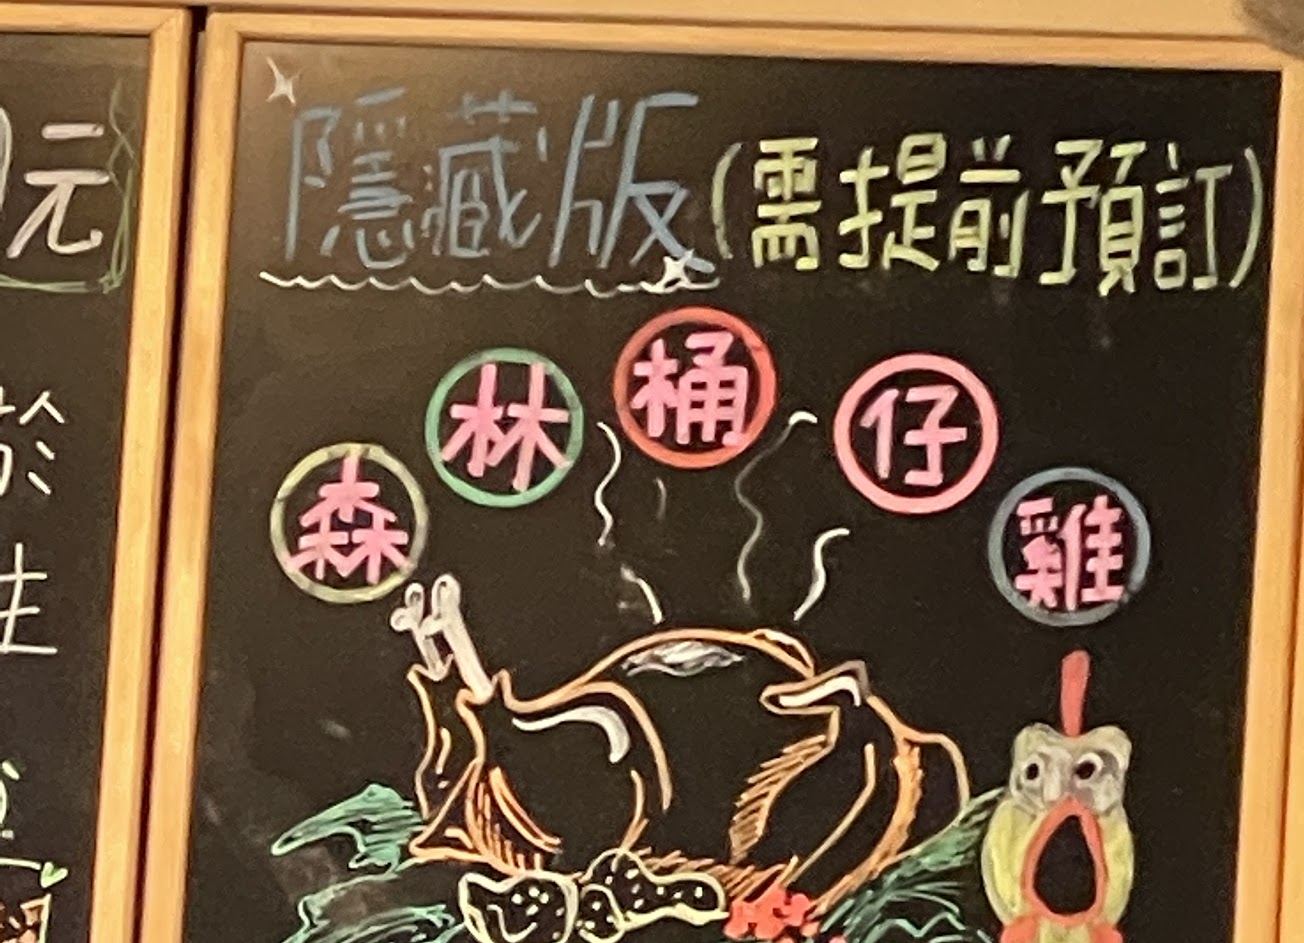 元
於
生
隱藏版(需提前預訂)
森林桶仔雞